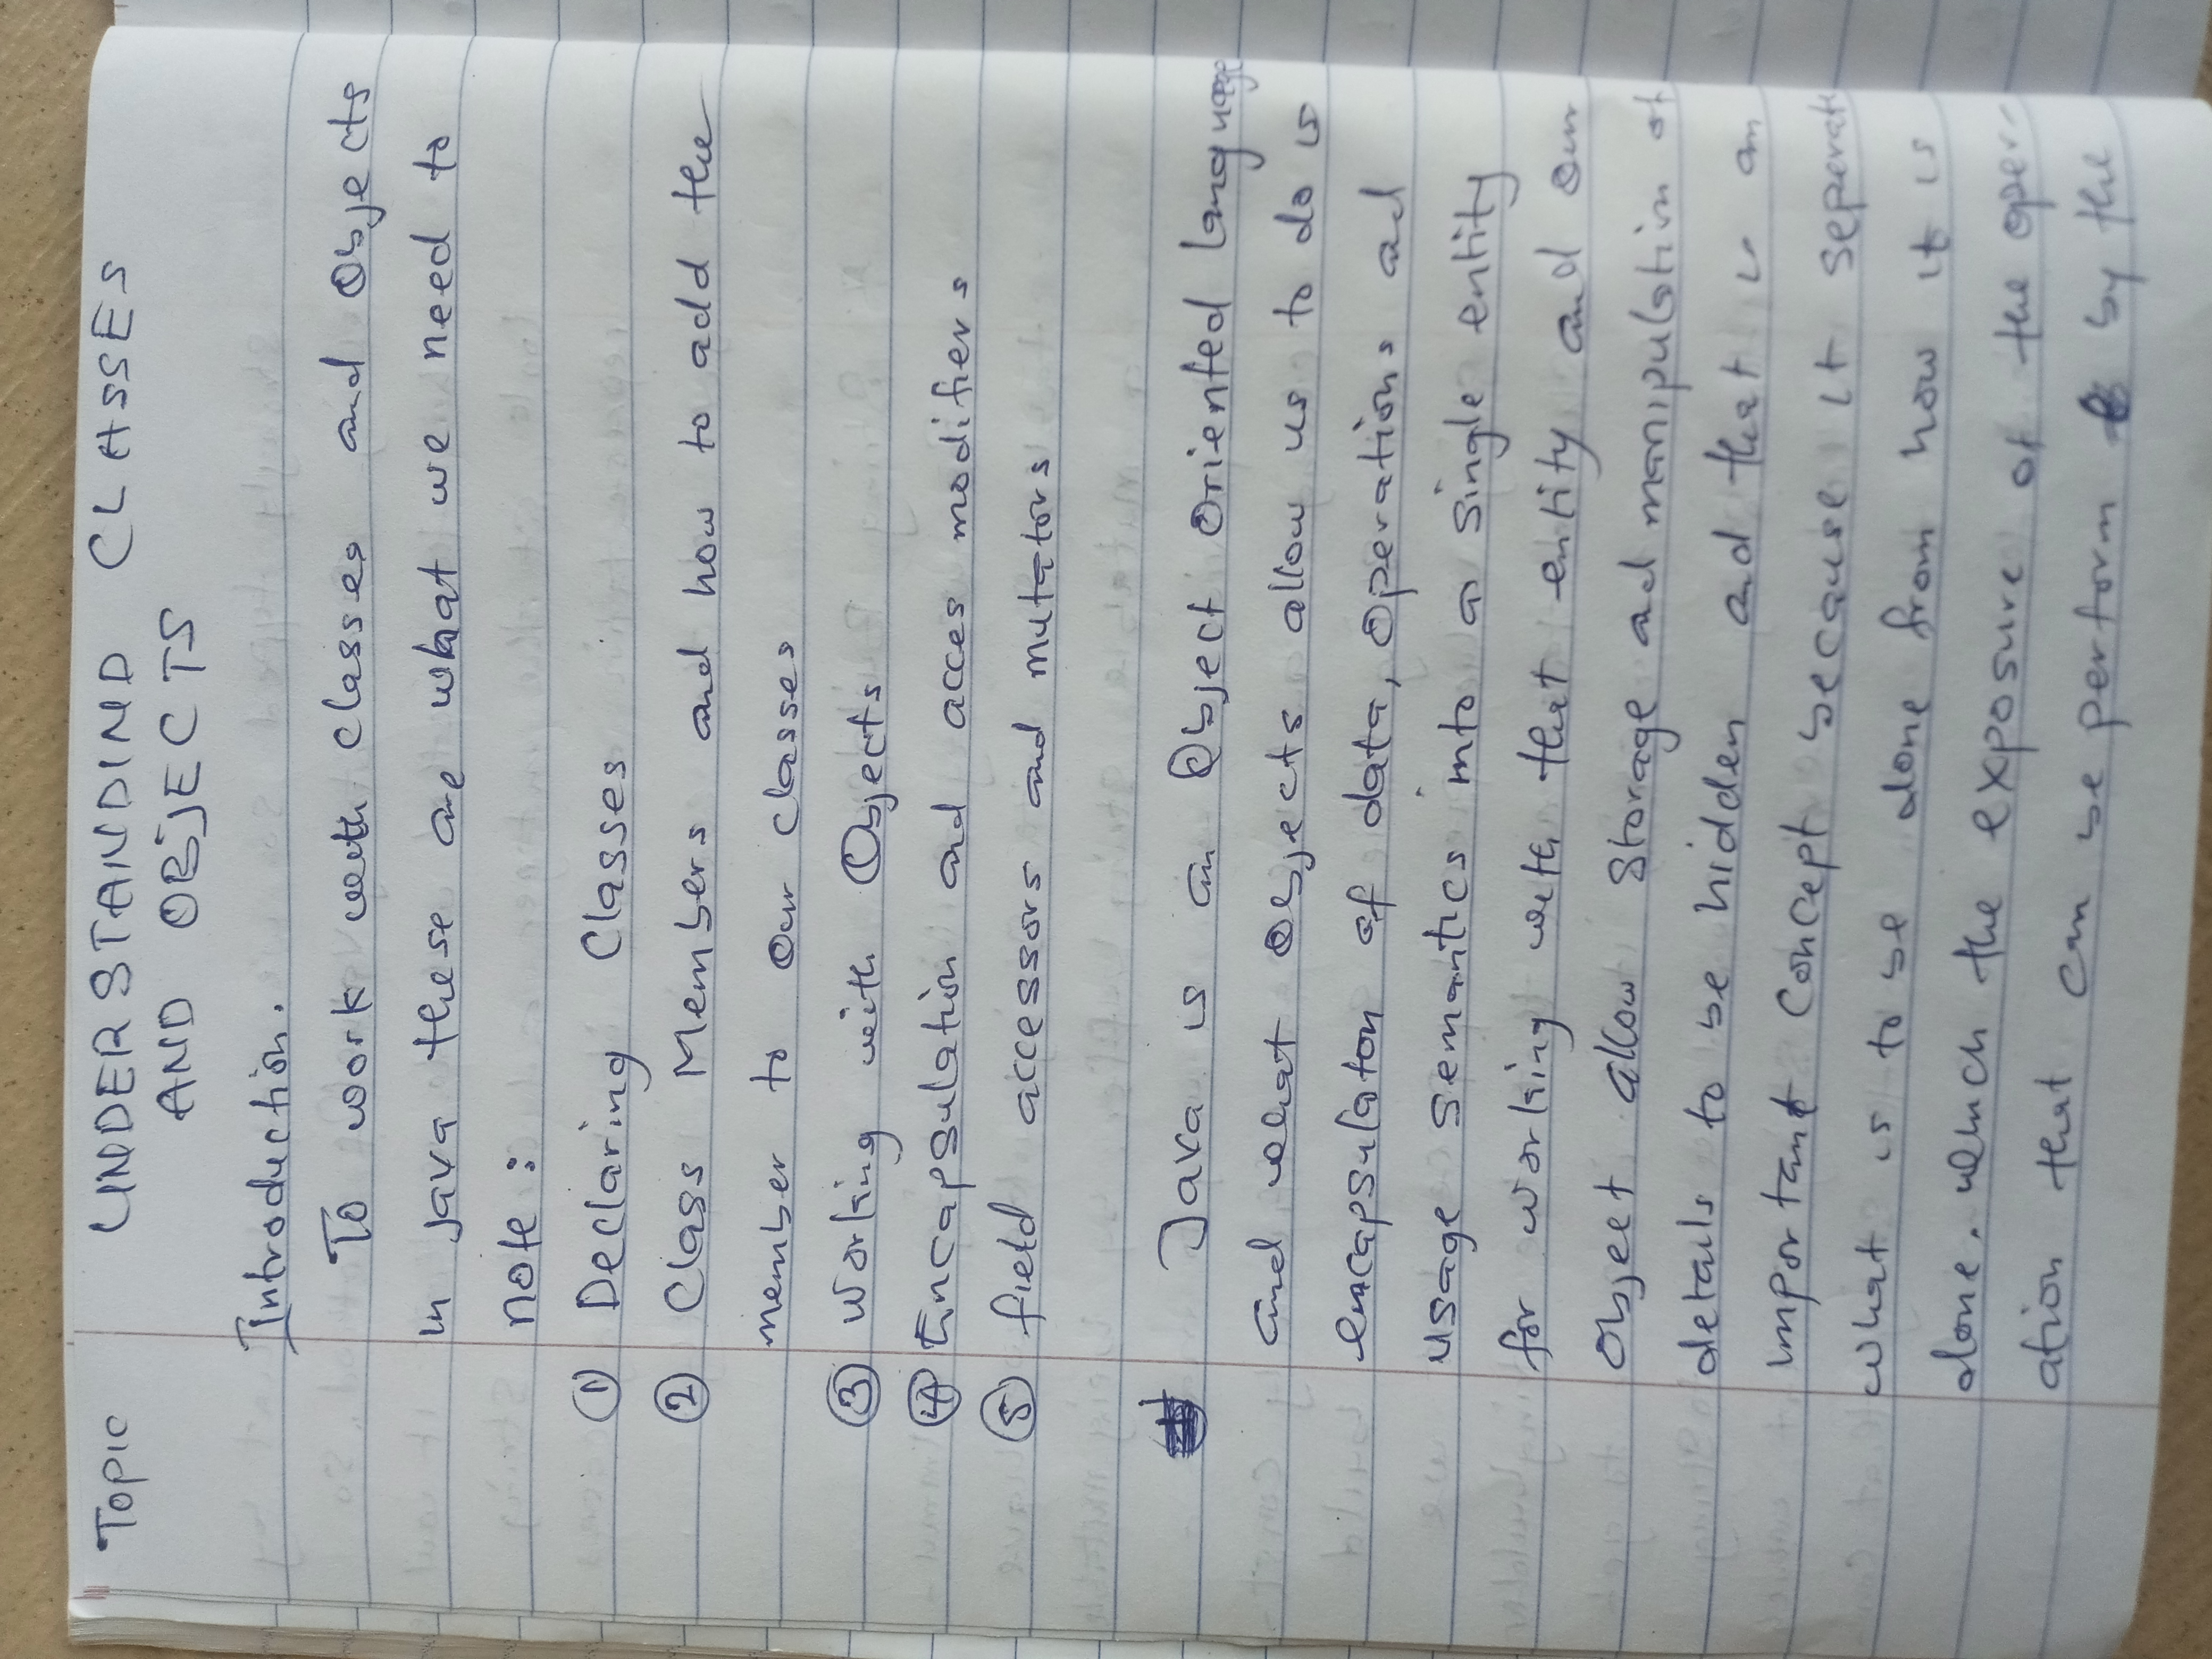 TOPIC UNDERSTANDIND CLASSES
AND OBJECTS
Introduction.
To work with classes and Objects
in java these are what we need to
note:
① Declaring Classes
② Class Members and how to add the
member to our classes
③ working with Objects
④ Encapsulation and acces modifiers
⑤ field accessors and mutators
Java is an Object Oriented language
and what Objects allow us to do is
encapsulaton of data, Operations and
usage semantics into a single entity
for working with that entity and our
Object allow storage and manipulation of
details to be hidden and that is an
important concept because it seperate
what is to be done from how it is
done. which the exposure of the oper-
ation that can be perform by the